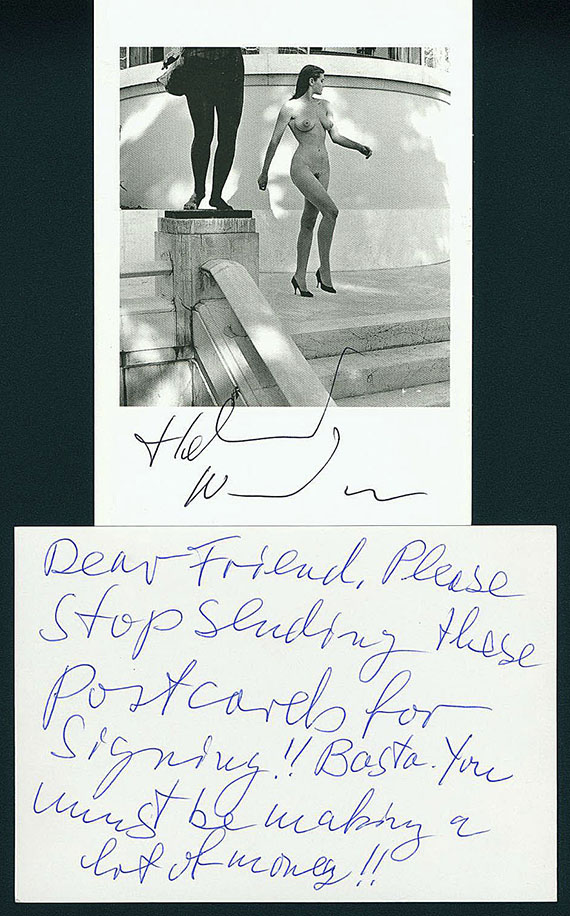 Helmut
Newton
Dear Friend, Please
Stop sending these
postcards for
Signing!! Basta. You
must be making a
lot of money!!